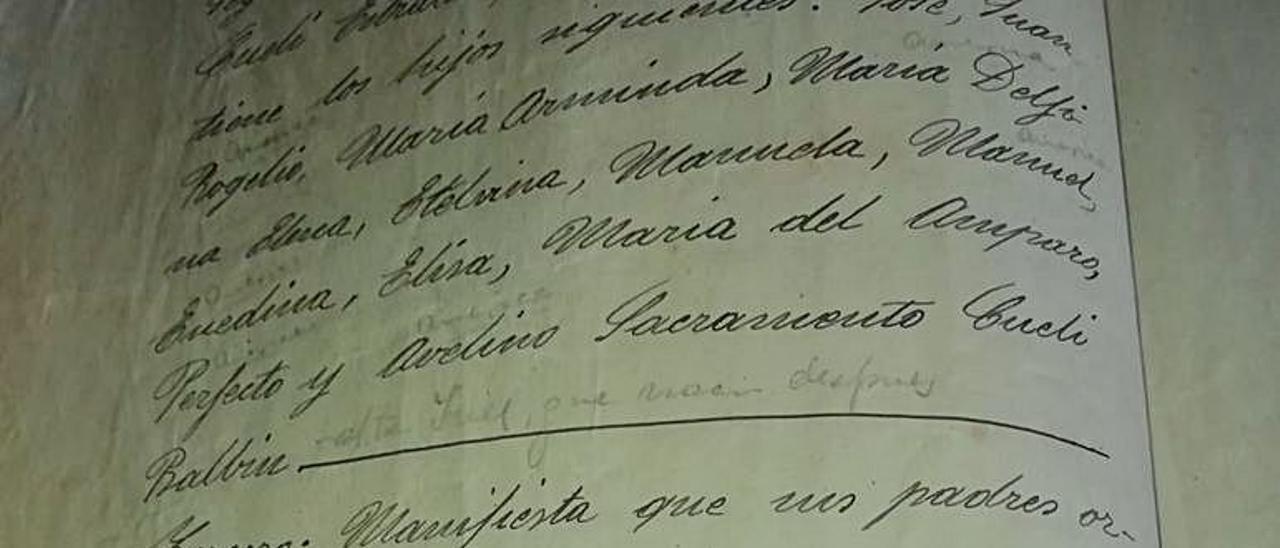 Cueli
tiene los hijos siguientes: José, Juan
Rogelio, María Arminda, María Delfi-
na Elena, Etelvina, Manuela, Manuel,
Enedina, Elisa, María del Amparo,
Perfecto y Avelino Sacramento Cueli
que nació después
Balbin
Manifiesta que sus padres or-